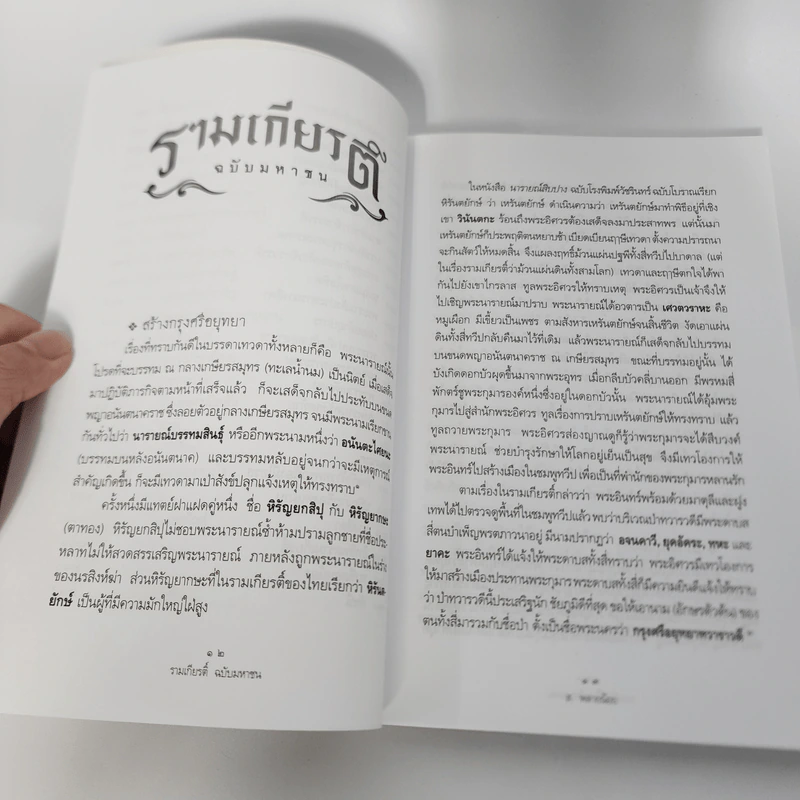 รามเกียรติ์
ฉบับมหาชน
❖ สร้างกรุงศรีอยุทยา
เรื่องที่ทราบกันดีในบรรดาเทวดาทั้งหลายก็คือ พระนารายณ์นั้น
โปรดที่จะบรรทม ณ กลางเกษียรสมุทร (ทะเลน้ำนม) เป็นนิตย์ เมื่อเสด็จ
มาปฏิบัติภารกิจตามหน้าที่เสร็จแล้ว ก็จะเสด็จกลับไปประทับบนขนด
พญาอนันตนาคราช ซึ่งลอยตัวอยู่กลางเกษียรสมุทร จนมีพระนามเรียกขาน
กันทั่วไปว่า นารายณ์บรรทมสินธุ์ หรืออีกพระนามหนึ่งว่า อนันตะไศยนะ
(บรรทมบนหลังอนันตนาค) และบรรทมหลับอยู่จนกว่าจะมีเหตุการณ์
สำคัญเกิดขึ้น ก็จะมีเทวดามาเป่าสังข์ปลุกแจ้งเหตุให้ทรงทราบ"
ครั้งหนึ่งมีแทตย์ฝาแฝดคู่หนึ่ง ชื่อ หิรัญยกสิปุ กับ หิรัญยากษะ
(ตาทอง) หิรัญยกสิปุไม่ชอบพระนารายณ์ซ้ำห้ามปรามลูกชายที่ชื่อประ-
หลาทไม่ให้สวดสรรเสริญพระนารายณ์ ภายหลังถูกพระนารายณ์ในร่าง
ของนรสิงห์ฆ่า ส่วนหิรัญยากษะที่ในรามเกียรติ์ของไทยเรียกว่า หิรันต-
ยักษ์ เป็นผู้ที่มีความมักใหญ่ใฝ่สูง
๑๒
รามเกียรติ์ ฉบับมหาชน
ในหนังสือ นารายณ์สิบปาง ฉบับโรงพิมพ์วัชรินทร์ ฉบับโบราณเรียก
หิรันตยักษ์ ว่า เหรันตยักษ์ ดำเนินความว่า เหรันตยักษ์มาทำพิธีอยู่ที่เชิง
เขา วินันตกะ ร้อนถึงพระอิศวรต้องเสด็จลงมาประสาทพร แต่นั้นมา
เหรันตยักษ์ก็ประพฤติตนหยาบช้า เบียดเบียนฤๅษีเทวดา ตั้งความปรารถนา
จะกินสัตว์ให้หมดสิ้น จึงแผลงฤทธิ์ม้วนแผ่นปฐพีทั้งสี่ทวีปไปบาดาล (แต่
ในเรื่องรามเกียรติ์ว่าม้วนแผ่นดินทั้งสามโลก) เทวดาและฤๅษีตกใจได้พา
กันไปยังเขาไกรลาส ทูลพระอิศวรให้ทราบเหตุ พระอิศวรเป็นเจ้าจึงให้
ไปเชิญพระนารายณ์มาปราบ พระนารายณ์ได้อวตารเป็น เศวตวราหะ คือ
หมูเผือก มีเขี้ยวเป็นเพชร ตามสังหารเหรันตยักษ์จนสิ้นชีวิต งัดเอาแผ่น
ดินทั้งสี่ทวีปกลับคืนมาไว้ที่เดิม แล้วพระนารายณ์ก็เสด็จกลับไปบรรทม
บนขนดพญาอนันตนาคราช ณ เกษียรสมุทร ขณะที่บรรทมอยู่นั้น ได้
บังเกิดดอกบัวผุดขึ้นมาจากพระอุทร เมื่อกลีบบัวคลี่บานออก มีพรหมสี่
พักตร์ชูพระกุมารองค์หนึ่งซึ่งอยู่ในดอกบัวนั้น พระนารายณ์ได้อุ้มพระ
กุมารไปสู่สำนักพระอิศวร ทูลเรื่องการปราบเหรันตยักษ์ให้ทรงทราบ แล้ว
ทูลถวายพระกุมาร พระอิศวรส่องญาณดูก็รู้ว่าพระกุมารจะได้สืบวงศ์
พระนารายณ์ ช่วยบำรุงรักษาให้โลกอยู่เย็นเป็นสุข จึงมีเทวโองการให้
พระอินทร์ไปสร้างเมืองในชมพูทวีป เพื่อเป็นที่พำนักของพระกุมารหลานรัก
ตามเรื่องในรามเกียรติ์กล่าวว่า พระอินทร์พร้อมด้วยมาตุลีและฝูง
เทพได้ไปตรวจดูพื้นที่ในชมพูทวีปแล้ว พบว่าบริเวณป่าทวาราวดีมีพระดาบส
สี่ตนบำเพ็ญพรตภาวนาอยู่ มีนามปรากฏว่า อจนคาวี, ยุคอัคระ, ทหะ และ
ยาคะ พระอินทร์ได้แจ้งให้พระดาบสทั้งสี่ทราบว่า พระอิศวรมีเทวโองการ
ให้มาสร้างเมืองประทานพระกุมาร พระดาบสทั้งสี่ก็มีความยินดีแจ้งให้ทราบ
ว่า ป่าทวาราวดีนี้ประเสริฐนัก ชัยภูมิดีที่สุด ขอให้เอานาม (อักษรตัวต้น) ของ
ตนทั้งสี่มารวมกับชื่อป่า ตั้งเป็นชื่อพระนครว่า กรุงศรีอยุทยาทวาราวดี "
๑๓
ส. พลายน้อย